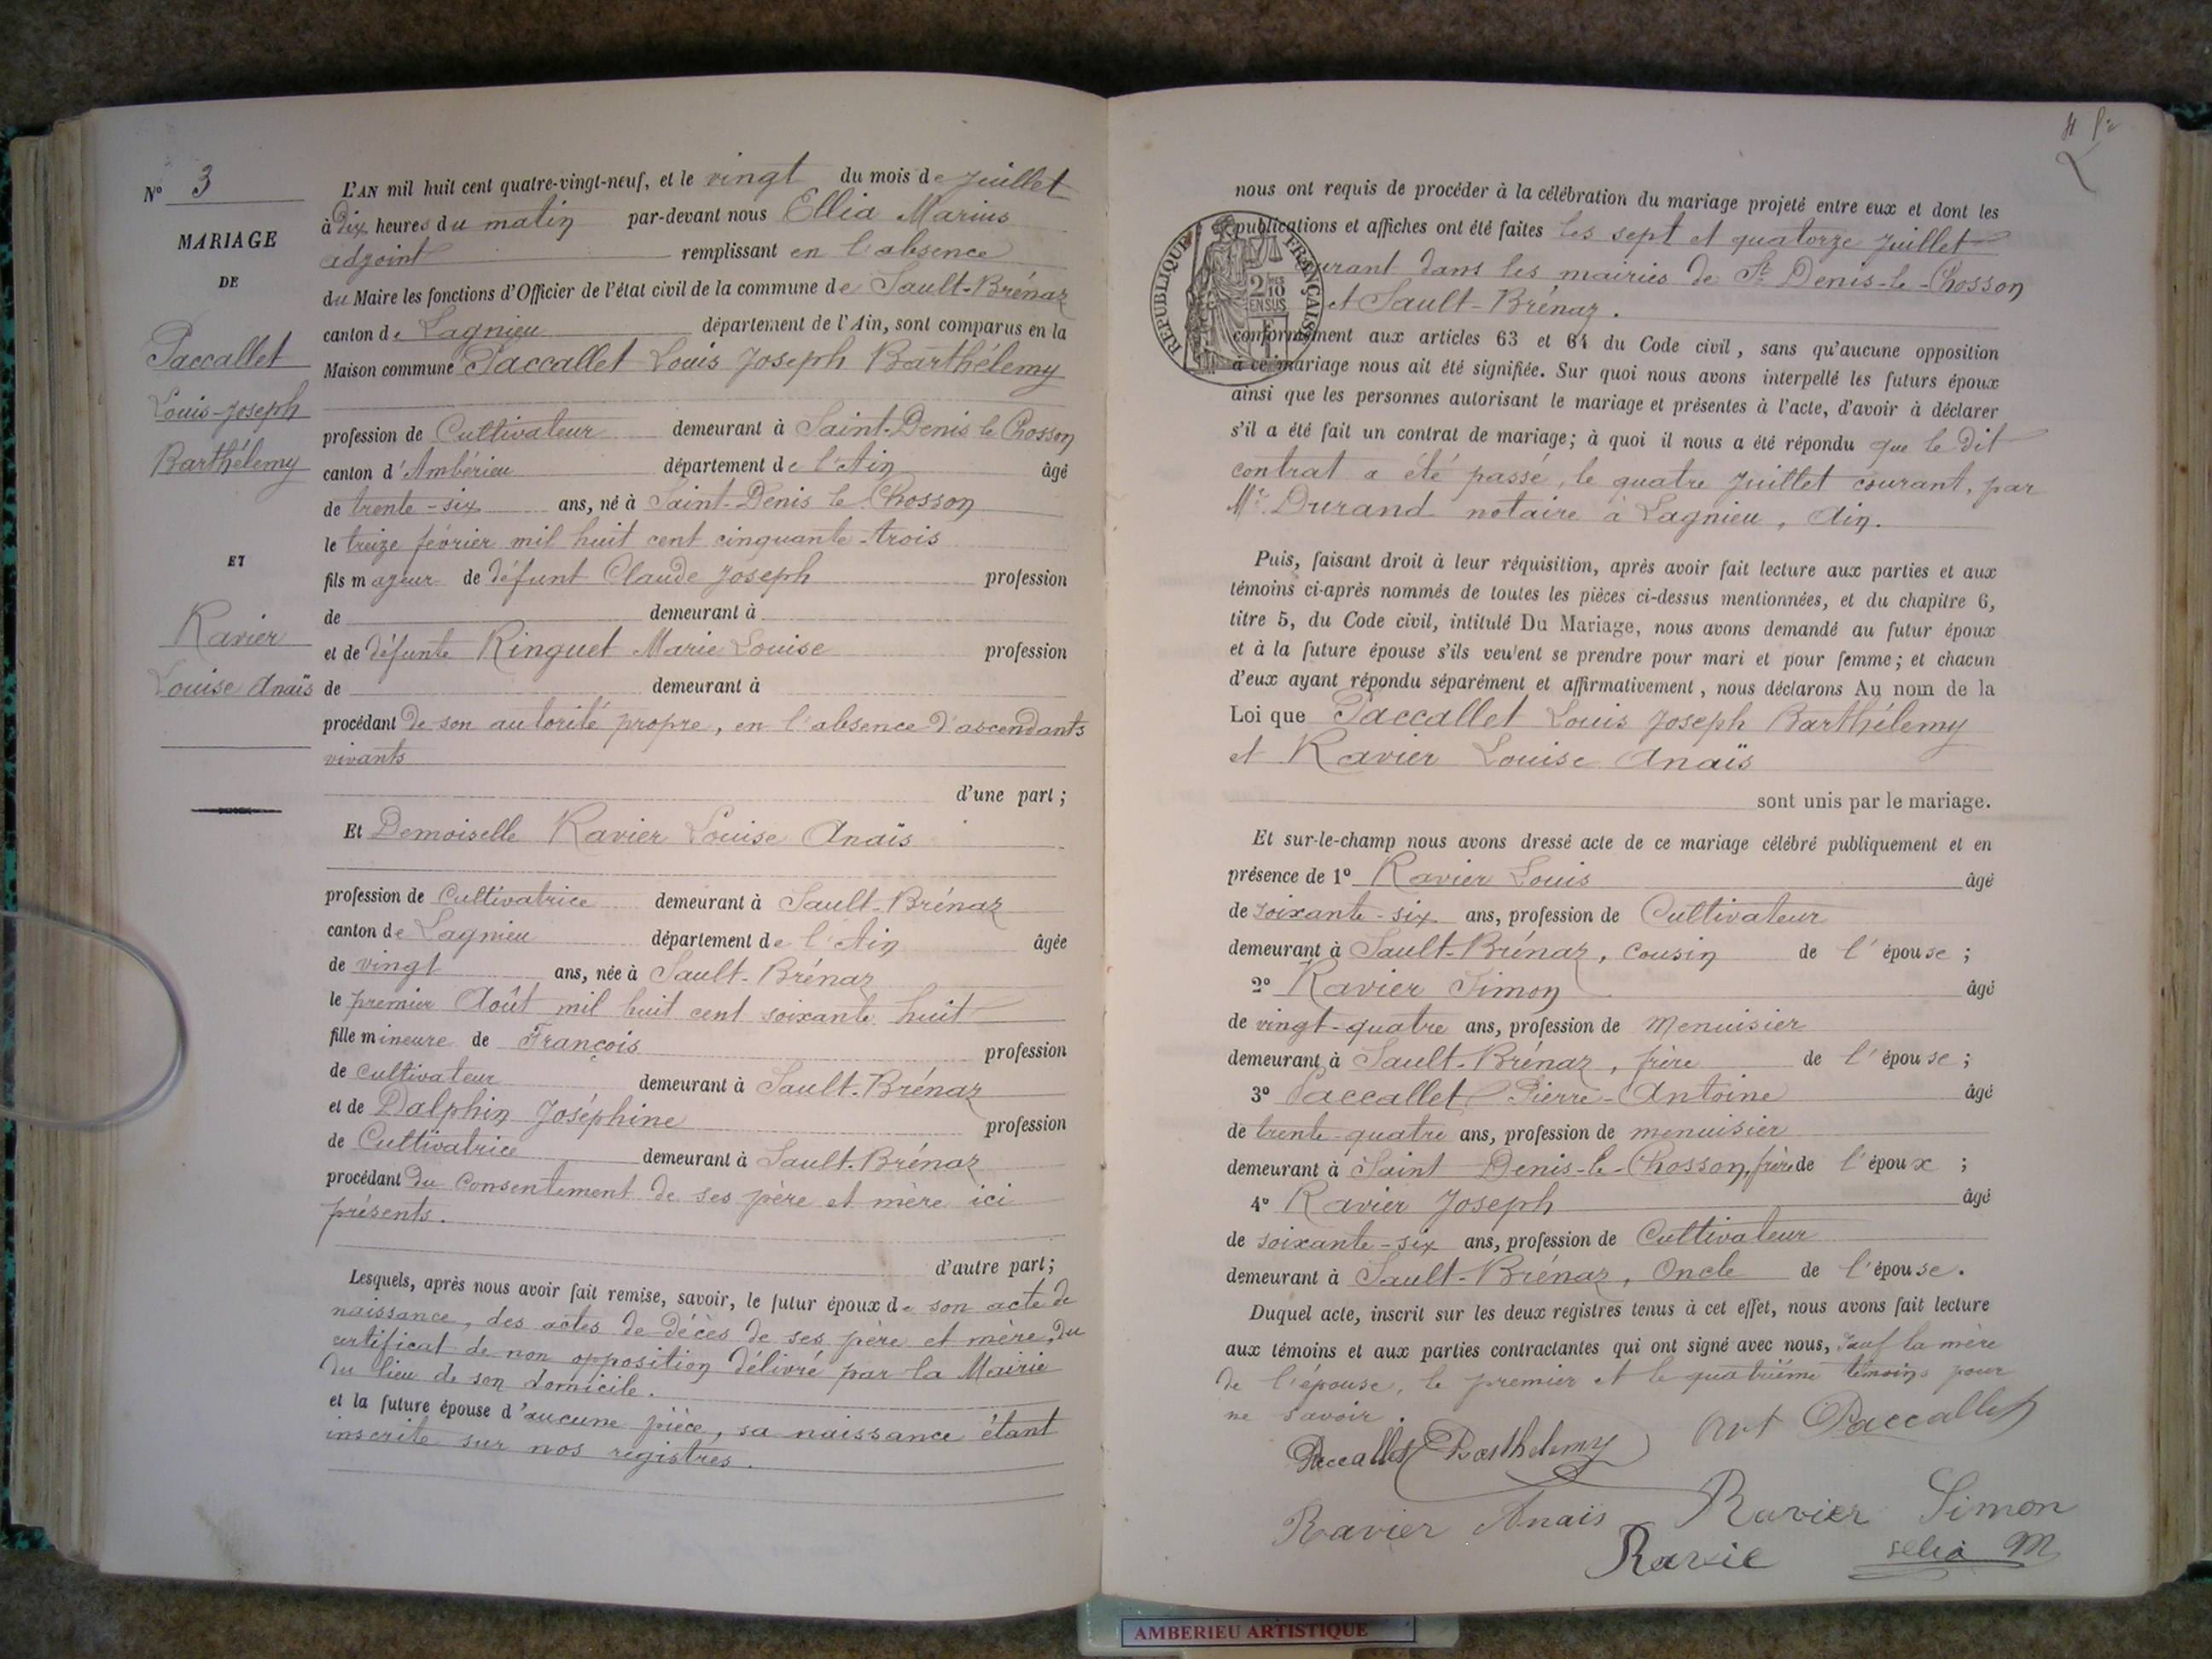 N° 3
MARIAGE
DE
Paccallet
Louis-Joseph
Barthélemy
ET
Ravier
Louise Anaïs
L'AN mil huit cent quatre-vingt-neuf, et le vingt du mois de Juillet
à Dix heures du matin par-devant nous Ellia Marius
adjoint remplissant en l'absence
du Maire les fonctions d'Officier de l'état civil de la commune de Sault-Brénaz
canton de Lagnieu département de l'Ain, sont comparus en la
Maison commune Paccallet Louis Joseph Barthélemy
profession de Cultivateur demeurant à Saint-Denis le Chosson
canton d'Ambérieu département de l'Ain âgé
de trente-six ans, né à Saint-Denis le Chosson
le treize février mil huit cent cinquante-trois
fils majeur de défunt Claude Joseph profession
de demeurant à
et de défunte Ringuet Marie Louise profession
de demeurant à
procédant de son autorité propre, en l'absence d'ascendants
vivants
d'une part;
Et Demoiselle Ravier Louise Anaïs
profession de Cultivatrice demeurant à Sault-Brénaz
canton de Lagnieu département de l'Ain âgée
de vingt ans, née à Sault-Brénaz
le premier Août mil huit cent soixante huit
fille mineure de François profession
de cultivateur demeurant à Sault-Brénaz
et de Dalphin Joséphine profession
de Cultivatrice demeurant à Sault-Brénaz
procédant du consentement de ses père et mère ici
présents.
d'autre part;
Lesquels, après nous avoir fait remise, savoir, le futur époux de son acte de
naissance, des actes de décès de ses père et mère, du
certificat de non opposition délivré par la Mairie
du lieu de son domicile.
et la future épouse d'aucune pièce, sa naissance étant
inscrite sur nos registres.
nous ont requis de procéder à la célébration du mariage projeté entre eux et dont les
publications et affiches ont été faites les sept et quatorze Juillet
courant dans les mairies de St Denis-le-Chosson
et Sault-Brénaz.
RÉPUBLIQUE FRANÇAISE
2/10 EN SUS
conformément aux articles 63 et 64 du Code civil, sans qu'aucune opposition
à ce mariage nous ait été signifiée. Sur quoi nous avons interpellé les futurs époux
ainsi que les personnes autorisant le mariage et présentes à l'acte, d'avoir à déclarer
s'il a été fait un contrat de mariage; à quoi il nous a été répondu que le dit
contrat a été passé, le quatre Juillet courant, par
Me Durand notaire à Lagnieu, Ain.
Puis, faisant droit à leur réquisition, après avoir fait lecture aux parties et aux
témoins ci-après nommés de toutes les pièces ci-dessus mentionnées, et du chapitre 6,
titre 5, du Code civil, intitulé Du Mariage, nous avons demandé au futur époux
et à la future épouse s'ils veulent se prendre pour mari et pour femme; et chacun
d'eux ayant répondu séparément et affirmativement, nous déclarons Au nom de la
Loi que Paccallet Louis Joseph Barthélemy
et Ravier Louise Anaïs
sont unis par le mariage.
Et sur-le-champ nous avons dressé acte de ce mariage célébré publiquement et en
présence de 1° Ravier Louis âgé
de soixante-six ans, profession de Cultivateur
demeurant à Sault-Brénaz, cousin de l'épouse;
2° Ravier Simon âgé
de vingt-quatre ans, profession de menuisier
demeurant à Sault-Brénaz, frère de l'épouse;
3° Paccallet Pierre-Antoine âgé
de trente-quatre ans, profession de menuisier
demeurant à Saint Denis-le-Chosson, frère de l'époux;
4° Ravier Joseph âgé
de soixante-six ans, profession de Cultivateur
demeurant à Sault-Brénaz, Oncle de l'épouse.
Duquel acte, inscrit sur les deux registres tenus à cet effet, nous avons fait lecture
aux témoins et aux parties contractantes qui ont signé avec nous, sauf la mère
de l'épouse, le premier et le quatrième témoins pour
ne savoir.
Paccallet Barthelemy Ant Paccallet
Ravier Anais Ravier Simon
Ravie M
AMBERIEU ARTISTIQUE